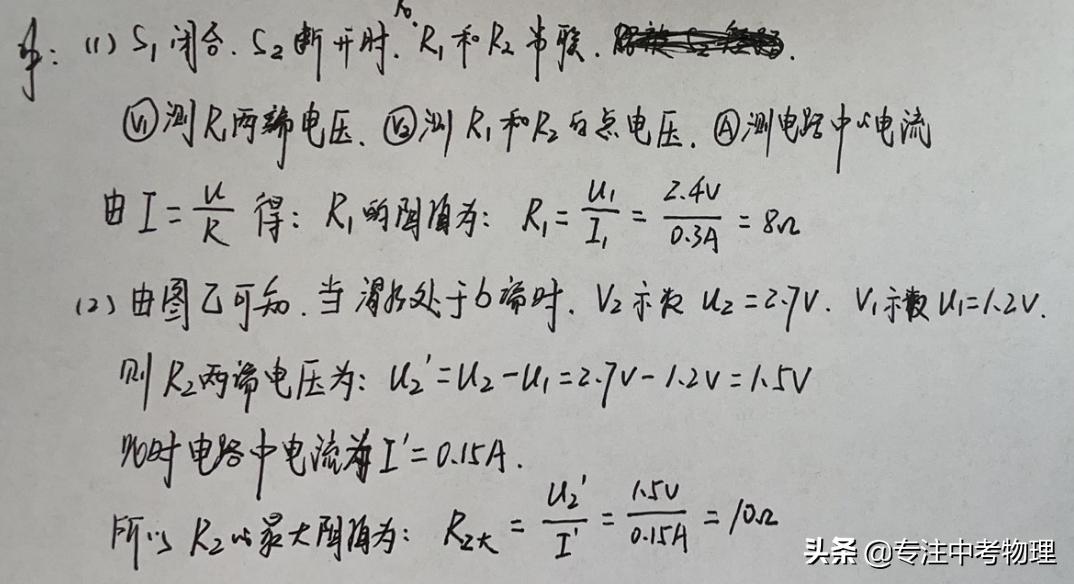 解：(1) S₁闭合. S₂断开时. R₀. R₁和R₂串联.
V₁测R₁两端电压. V₂测R₁和R₂的总电压. A测电路中的电流
由 I = U/R 得：R₁的阻值为：R₁ = U₁/I₁ = 2.4V/0.3A = 8Ω
(2) 由图乙可知. 当滑片处于b端时. V₂示数 U₂ = 2.7V. V₁示数 U₁ = 1.2V.
则R₂两端电压为：U₂' = U₂ - U₁ = 2.7V - 1.2V = 1.5V
此时电路中电流为I' = 0.15A.
所以R₂的最大阻值为：R₂大 = U₂'/I' = 1.5V/0.15A = 10Ω
头条 @专注中考物理